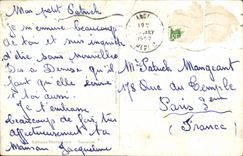 Mon petit Patrick
Je m'ennuie beaucoup
de toi et suis inquiète
d'être sans nouvelles
Dis à Denise qu'il
faut qu'elle écrive
et toi aussi.
Je t'embrasse
beaucoup de fois, très
affectueusement ta
Maman Jacqueline
19
1952
Mr Patrick Mangeant
178 Rue du Temple
Paris 3eme
(France)